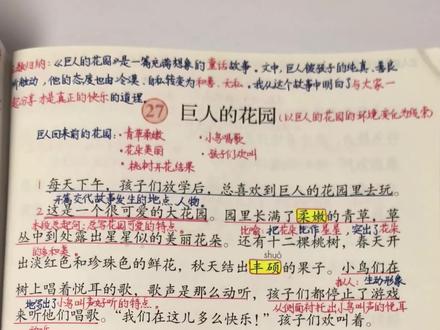 归纳：《巨人的花园》是一篇充满想象的童话故事。文中，巨人被孩子的纯真、善良
所触动，他的态度也由冷漠、自私转变为和善、无私。我从这个故事中明白了与大家一
起分享才是真正的快乐的道理。
27 巨人的花园（以巨人的花园的环境变化为线索）
巨人回来前的花园：·青草柔嫩 ·小鸟唱歌
·花朵美丽 ·孩子们欢叫
·桃树开花结果
1 每天下午，孩子们放学后，总喜欢到巨人的花园里去玩。
开篇交代故事发生的地点、人物。
2 这是一个很可爱的大花园。园里长满了柔嫩的青草，草
总写花园可爱的特点 比喻：把花朵比作星星，突出了花朵
丛中到处露出星星似的美丽花朵。还有十二棵桃树，春天开
的多和美。
shuò
出淡红色和珍珠色的鲜花，秋天结出丰硕的果子。小鸟们在
拟人：生动形象
树上唱着悦耳的歌，歌声是那么动听，孩子们都停止了游戏
地写出了小鸟叫声好听的特点。 从侧面衬托出小鸟叫声的悦耳
来听他们唱歌。“我们在这儿多么快乐！”孩子们欢叫着。